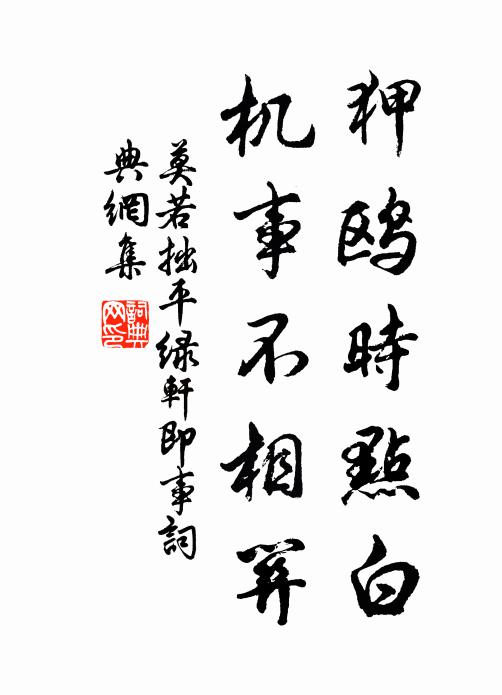 狎鸥時點白
机事不相
莫若拙平緑軒即事詞
典網集
詞典
网印